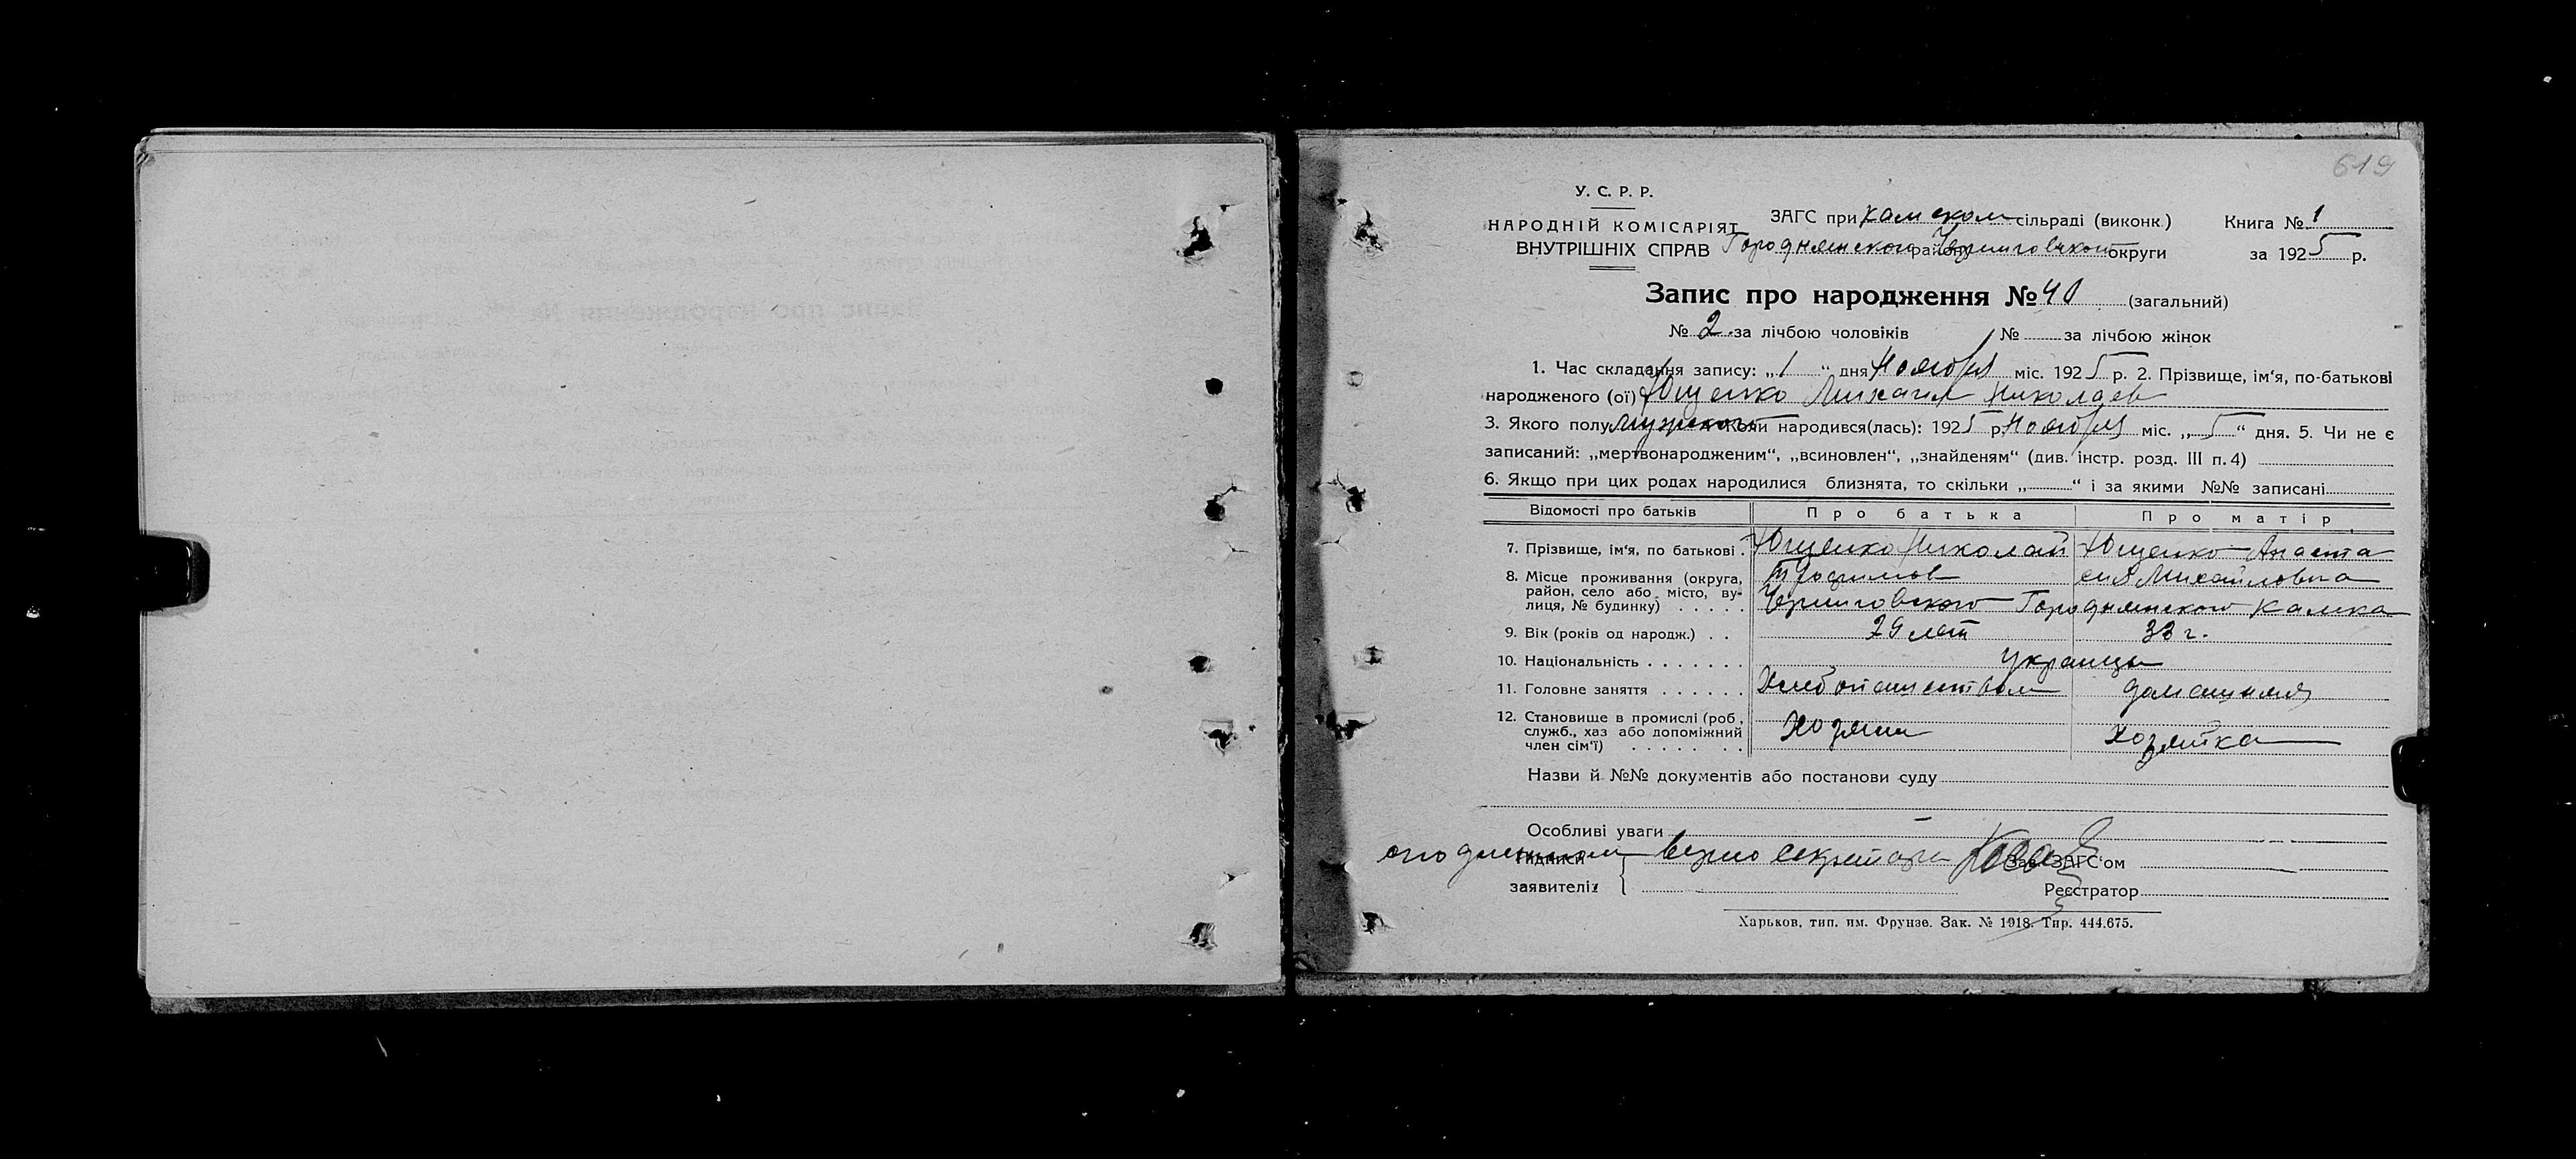 619
У. С. Р. Р.
НАРОДНІЙ КОМІСАРІЯТ
ВНУТРІШНІХ СПРАВ
ЗАГС при Камском сільраді (виконк.)
Городнянского району Черниговского округи
Книга № 1
за 1925 р.
Запис про народження № 40 (загальний)
№ 2 за лічбою чоловіків № за лічбою жінок
1. Час складання запису: „1“ дня Ноября міс. 1925 р. 2. Прізвище, ім'я, по-батькові
народженого (ої) Ющенко Михаил Николаев
3. Якого полу мужского Коли народився(лась): 1925 р. Ноября міс. „5“ дня. 5. Чи не є
записаний: „мертвонародженим“, „всиновлен“, „знайденям“ (див. інстр. розд. III п. 4)
6. Якщо при цих родах народилися близнята, то скільки „ “ і за якими №№ записані
Відомості про батьків Про батька Про матір
7. Прізвище, ім'я, по батькові . Ющенко Николай Ющенко Анаста
Трофимов сия Михайловна
8. Місце проживання (округа, район, село або місто, вулиця, № будинку) . . . . . Черниговского Городнянского Камка
9. Вік (років од народж.) . . 29 лет 33 г.
10. Національність . . . . . . . Украинцы
11. Головне заняття . . . . . . Хлебопашеством домашняя
12. Становище в промислі (роб., служб., хаз або допоміжний член сім'ї) . . . . . . . Хозяин Хозяйка
Назви й №№ документів або постанови суду
Особливі уваги
Підписи верно секретарь Зав. ЗАГС'ом
заявителів Реєстратор
Харьков, тип. им. Фрунзе. Зак. № 1918. Тир. 444.675.